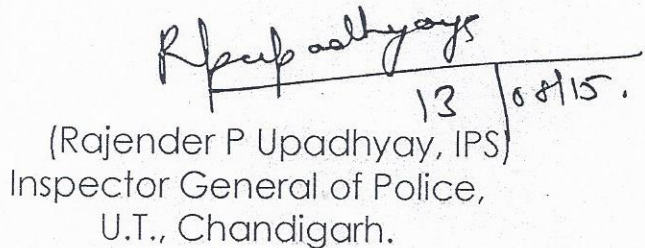 Rpupadhyaya
13 | 08/15.
(Rajender P Upadhyay, IPS)
Inspector General of Police,
U.T., Chandigarh.